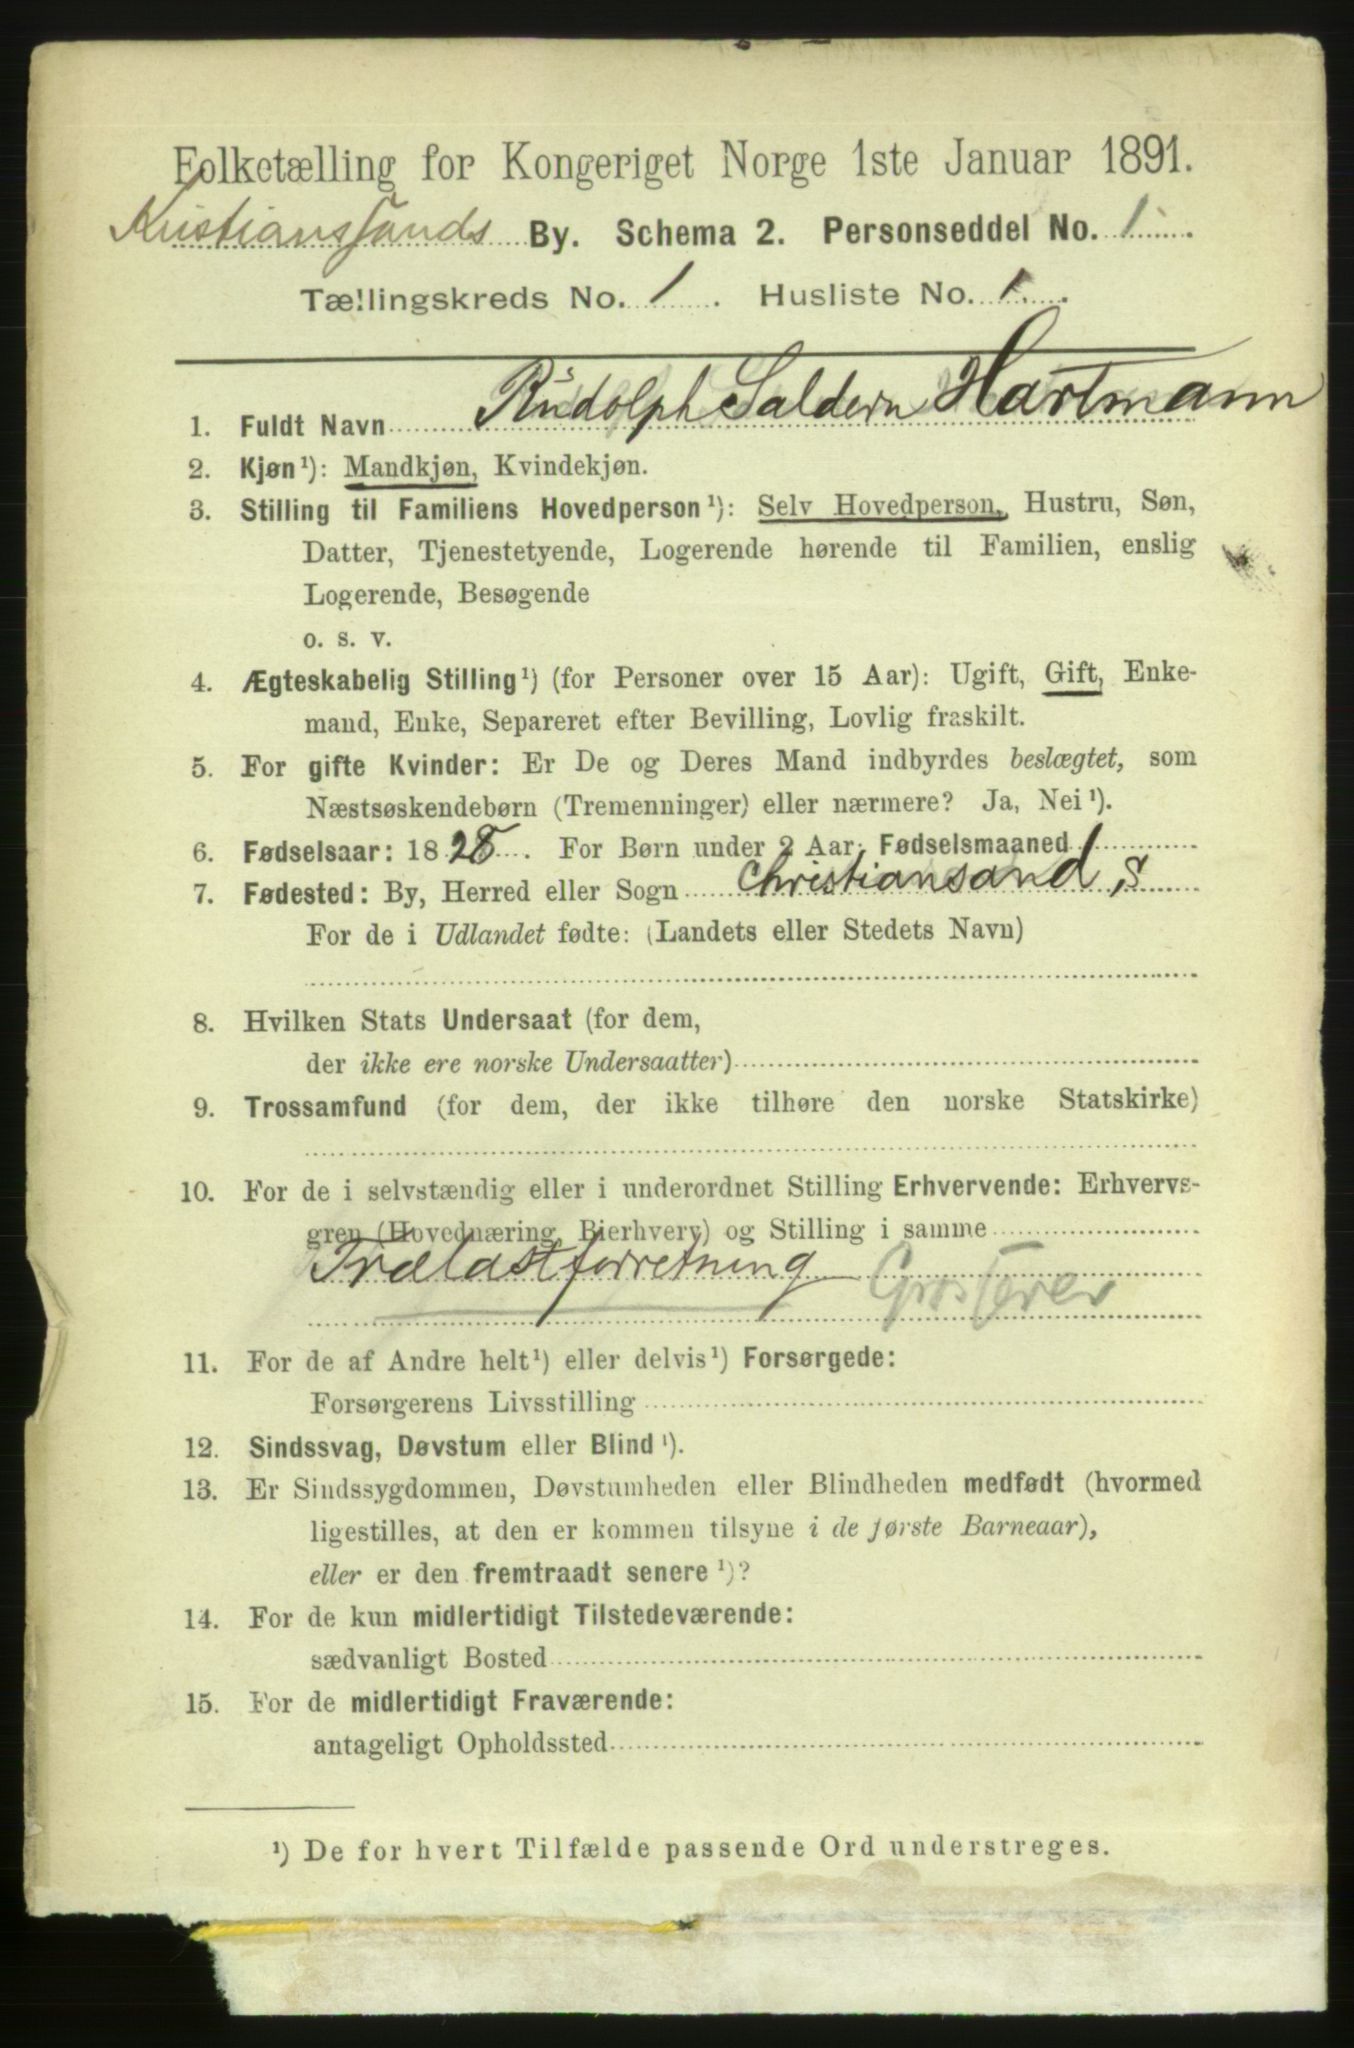 Folketælling for Kongeriget Norge 1ste Januar 1891.
Kristianssands By. Schema 2. Personseddel No. 1.
Tællingskreds No. 1. Husliste No. 1.
1. Fuldt Navn Rudolph Saldern Hartmann
2. Kjøn¹): Mandkjøn, Kvindekjøn.
3. Stilling til Familiens Hovedperson¹): Selv Hovedperson, Hustru, Søn,
Datter, Tjenestetyende, Logerende hørende til Familien, enslig
Logerende, Besøgende
o. s. v.
4. Ægteskabelig Stilling¹) (for Personer over 15 Aar): Ugift, Gift, Enke-
mand, Enke, Separeret efter Bevilling, Lovlig fraskilt.
5. For gifte Kvinder: Er De og Deres Mand indbyrdes beslægtet, som
Næstsøskendebørn (Tremenninger) eller nærmere? Ja, Nei¹).
6. Fødselsaar: 1828. For Børn under 2 Aar: Fødselsmaaned
7. Fødested: By, Herred eller Sogn Christiansand, S
For de i Udlandet fødte: (Landets eller Stedets Navn)
8. Hvilken Stats Undersaat (for dem,
der ikke ere norske Undersaatter)
9. Trossamfund (for dem, der ikke tilhøre den norske Statskirke)
10. For de i selvstændig eller i underordnet Stilling Erhvervende: Erhvervs-
gren (Hovednæring, Bierhverv) og Stilling i samme
Trælastforretning Grosserer
11. For de af Andre helt¹) eller delvis¹) Forsørgede:
Forsørgerens Livsstilling
12. Sindssvag, Døvstum eller Blind¹).
13. Er Sindssygdommen, Døvstumheden eller Blindheden medfødt (hvormed
ligestilles, at den er kommen tilsyne i de første Barneaar),
eller er den fremtraadt senere¹)?
14. For de kun midlertidigt Tilstedeværende:
sædvanligt Bosted
15. For de midlertidigt Fraværende:
antageligt Opholdssted
¹) De for hvert Tilfælde passende Ord understreges.